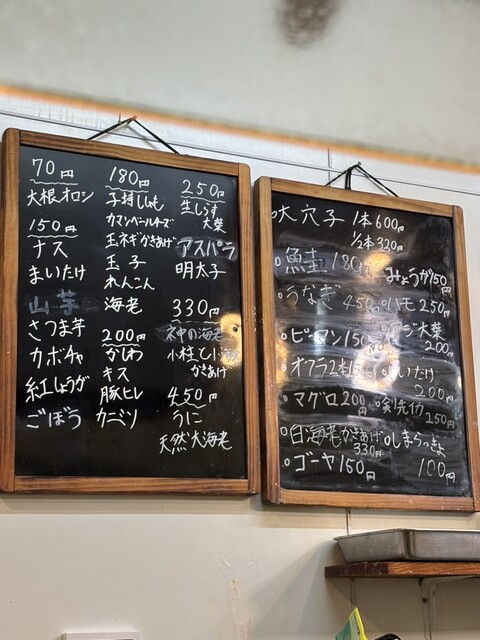 70円
大根オロシ
150円
ナス
まいたけ
山芋
さつま芋
カボチャ
紅しょうが
ごぼう
180円
子持ししゃも
カマンベールチーズ
玉ネギかきあげ
玉子
れんこん
海老
200円
かしわ
キス
豚ヒレ
カニツメ
250円
生しらす
大葉
アスパラ
明太子
330円
海老
小柱と
かきあげ
450円
うに
天然大海老
大穴子 1本600円
1/2本320円
180円 みょうが150円
うなぎ 450円 ハモ250円
ピーマン150円 アジ大葉
200円
オクラ2本
200円
マグロ200円 剣先イカ
250円
白海老かきあげ 島らっきょ
330円
ゴーヤ150円 100円